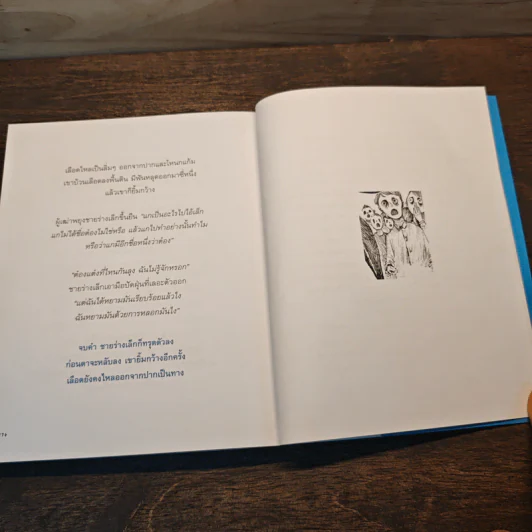 เลือดไหลเป็นลิ่มๆ ออกจากปากและโหนกแก้ม
เขาบ้วนเลือดลงพื้นดิน มีฟันหลุดออกมาซี่หนึ่ง
แล้วเขาก็ยิ้มกว้าง
ผู้เฒ่าพยุงชายร่างเล็กขึ้นยืน “แกเป็นอะไรไปไอ้เล็ก
แกไม่ได้ชื่อต้องไม่ใช่หรือ แล้วแกไปทำอย่างนั้นทำไม
หรือว่าแกมีอีกชื่อหนึ่งว่าต้อง”
“ต้องแต่งที่ไหนกันลุง ฉันไม่รู้จักหรอก”
ชายร่างเล็กเอามือปัดฝุ่นที่เลอะตัวออก
“แต่ฉันได้หยามมันเรียบร้อยแล้วไง
ฉันหยามมันด้วยการหลอกมันไง”
จบคำ ชายร่างเล็กก็ทรุดตัวลง
ก่อนตาจะหลับลง เขายิ้มกว้างอีกครั้ง
เลือดยังคงไหลออกจากปากเป็นทาง